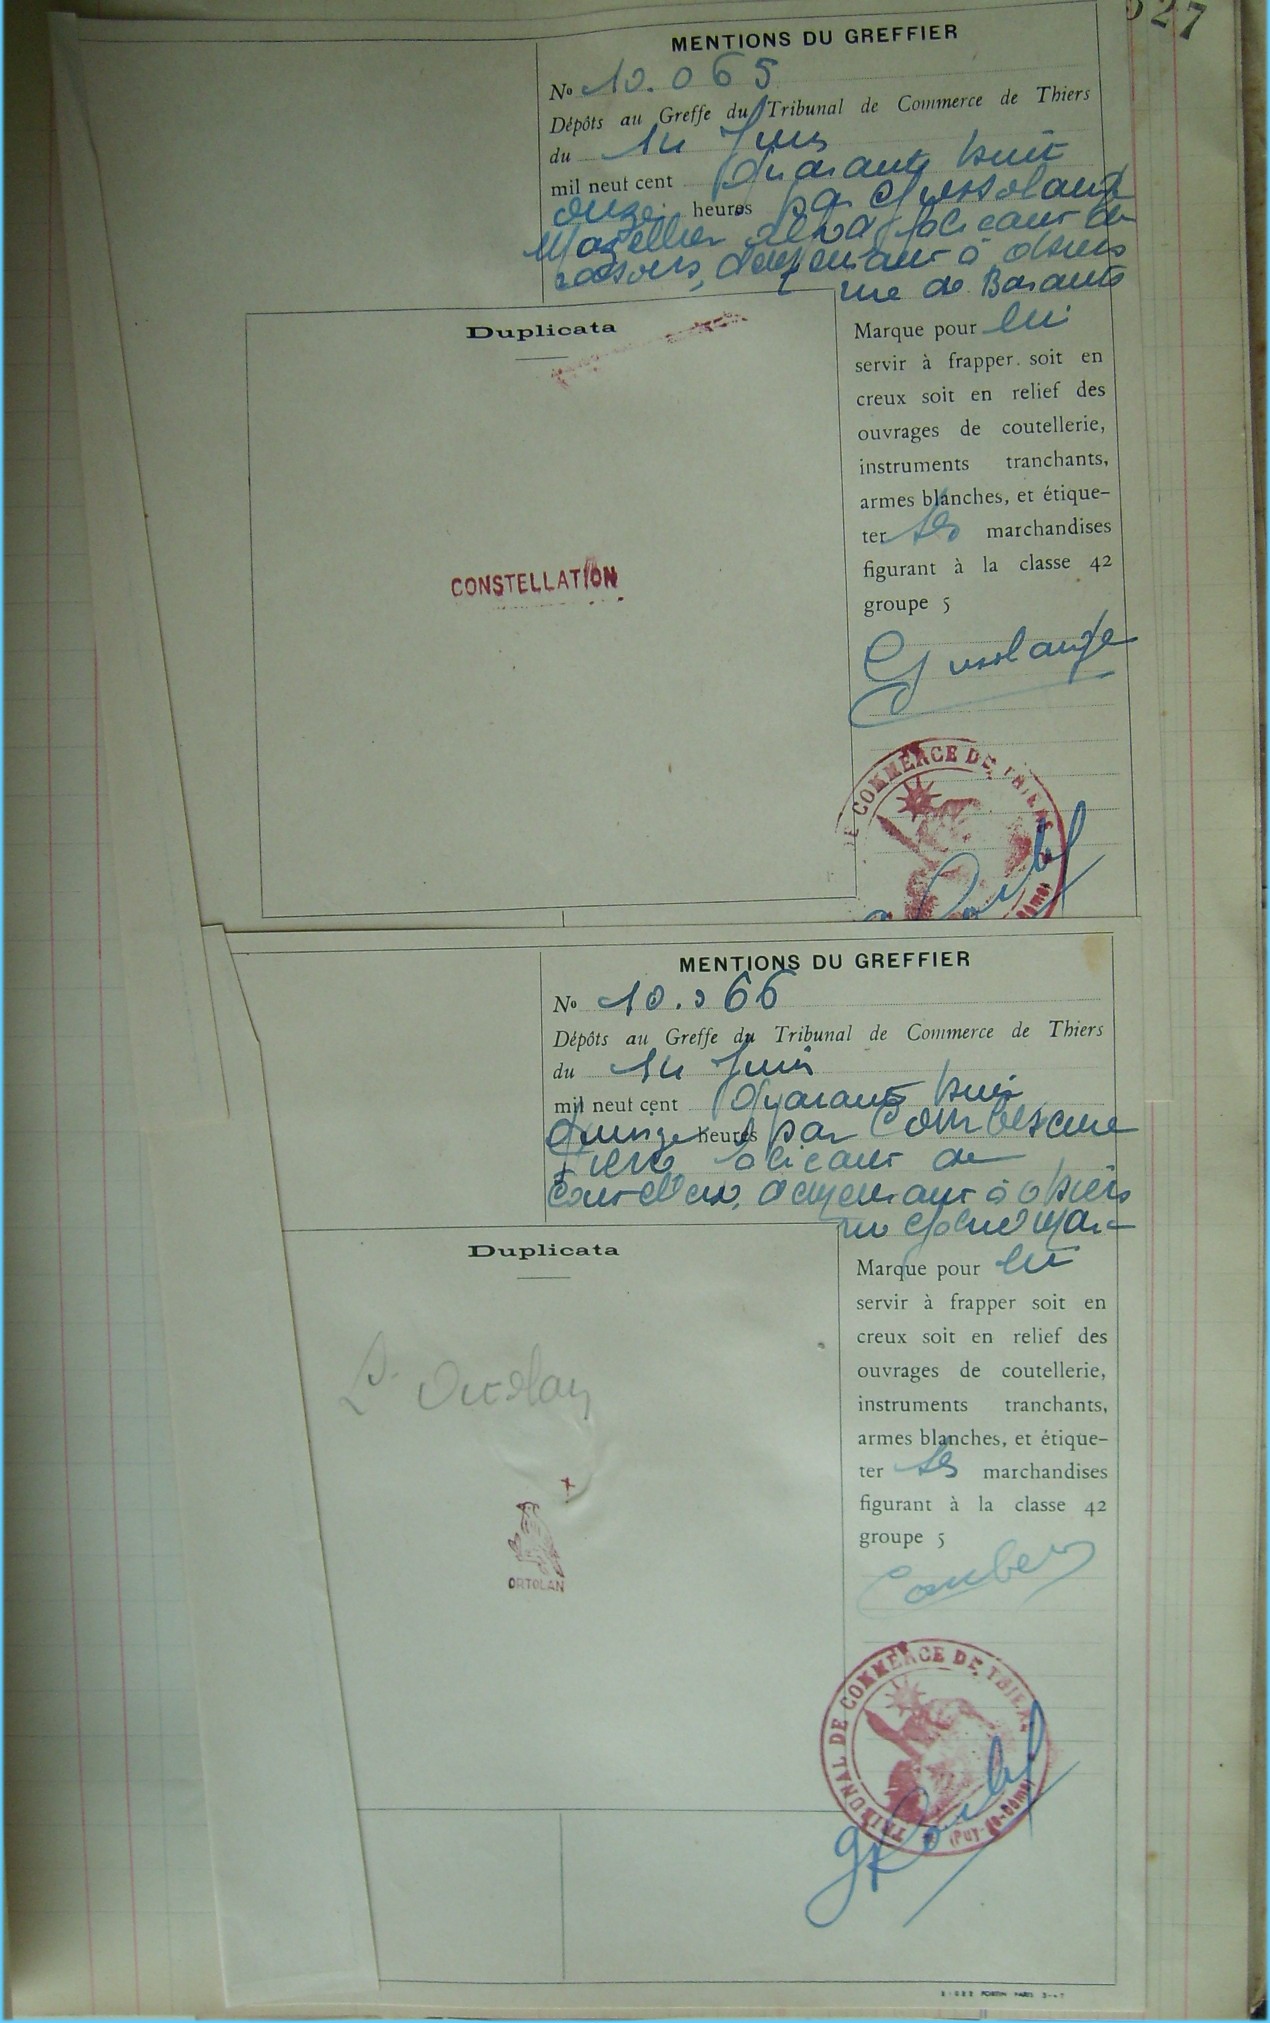 527
MENTIONS DU GREFFIER
No 10.065
Dépôts au Greffe du Tribunal de Commerce de Thiers
du 14 Juin
mil neuf cent quarante huit
onze heures par Gyssolange
Mazellier
rasoirs, demeurant à Thiers
rue de Barante
Duplicata
Marque pour lui
servir à frapper soit en
creux soit en relief des
ouvrages de coutellerie,
instruments tranchants,
armes blanches, et étique-
ter ses marchandises
figurant à la classe 42
groupe 5
CONSTELLATION
DE COMMERCE DE THIERS
MENTIONS DU GREFFIER
No 10.066
Dépôts au Greffe du Tribunal de Commerce de Thiers
du 14 Juin
mil neuf cent quarante huit
quinze heures par Combescure
fabricant de
coutellerie, demeurant à Thiers
rue
Duplicata
Marque pour lui
servir à frapper soit en
creux soit en relief des
ouvrages de coutellerie,
instruments tranchants,
armes blanches, et étique-
ter ses marchandises
figurant à la classe 42
groupe 5
L'Ortolan
ORTOLAN
TRIBUNAL DE COMMERCE DE THIERS
(Puy-de-Dôme)